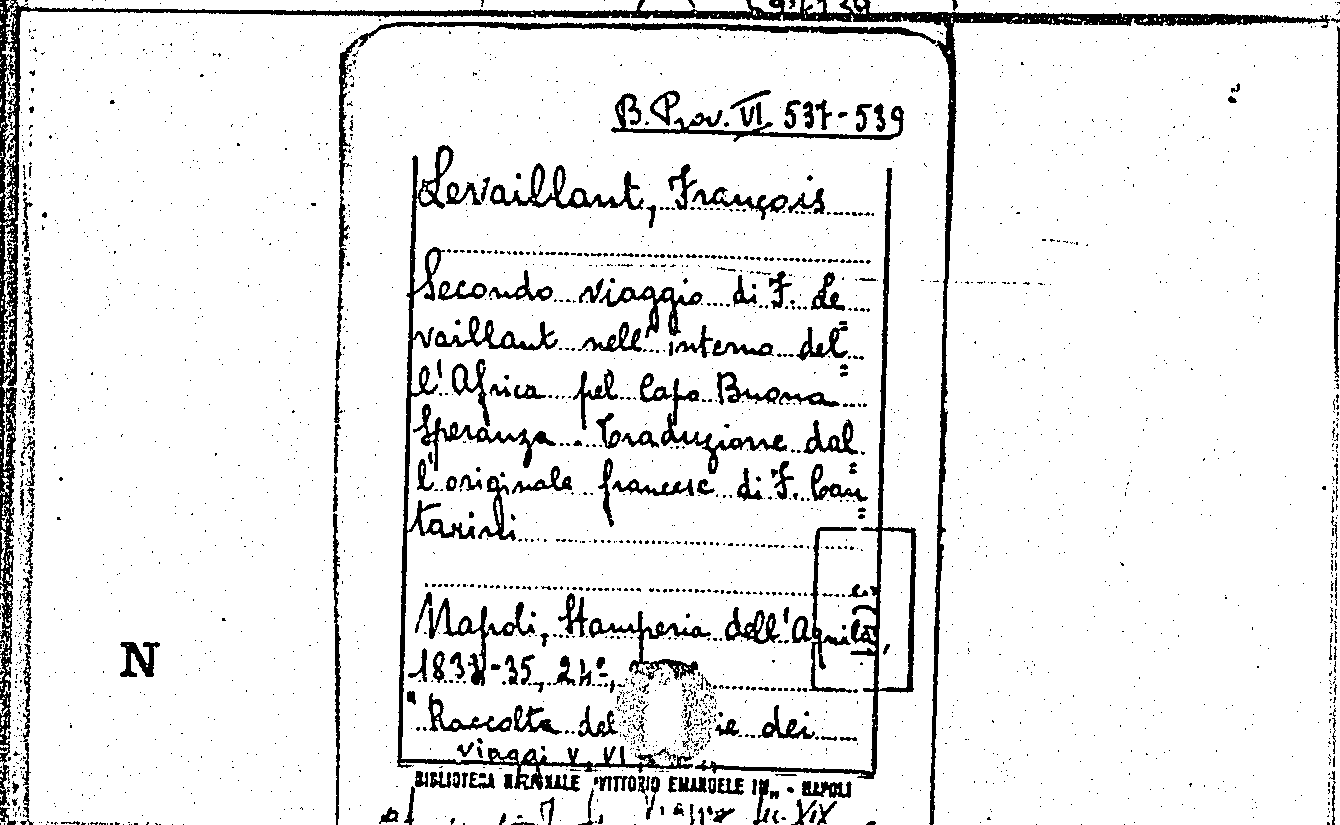 B. Prov. VI. 537-539
Levaillant, François
Secondo viaggio di F. Le=
vaillant nell' interno del=
l'Africa pel Capo Buona
Speranza. Traduzione dal=
l'originale francese di F. Con=
tarini
N
Napoli, Stamperia dell'Aquila,
-35, 24º,
"Raccolta del ie dei
viaggi V, VI
BIBLIOTECA NAZIONALE "VITTORIO EMANUELE III„ - NAPOLI
XIX